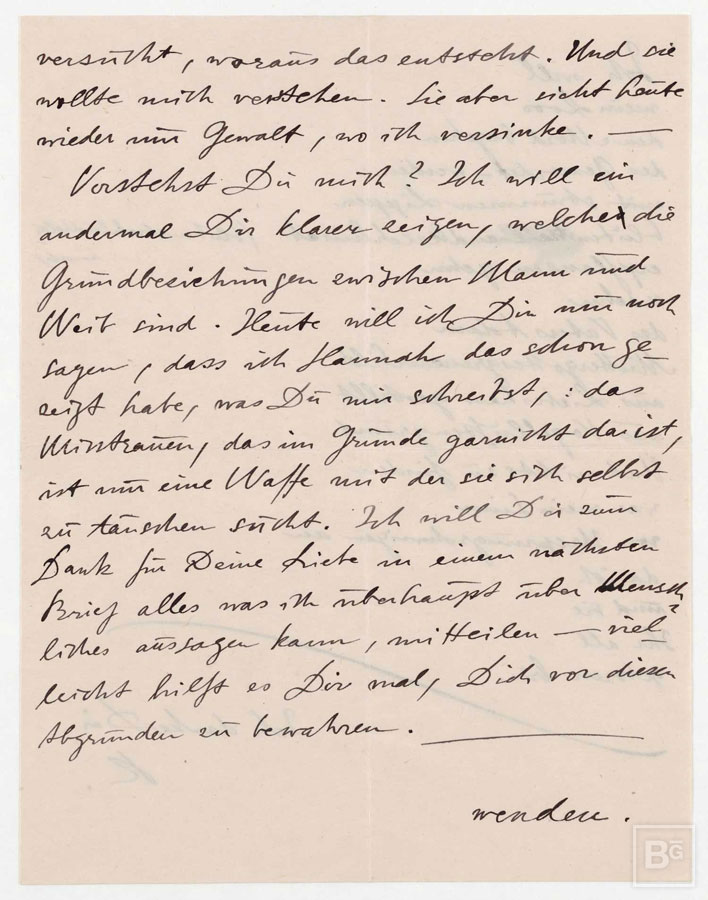 versucht, woraus das entsteht. Und sie
wollte mich verstehen. Sie aber sieht heute
wieder nur Gewalt, wo ich versinke. —
Verstehst Du mich? Ich will ein
andermal Dir klarer zeigen, welche die
Grundbeziehungen zwischen Mann und
Weib sind. Heute will ich Dir nur noch
sagen, dass ich Hannah das schon ge-
zeigt habe, was Du mir schreibst,: das
Misstrauen, das im Grunde garnicht da ist,
ist nur eine Waffe mit der sie sich selbst
zu täuschen sucht. Ich will Dir zum
Dank für Deine Liebe in einem nächsten
Brief alles was ich überhaupt über Mensch-
liches aussagen kann, mitteilen — viel-
leicht hilft es Dir mal, Dich vor diesen
Abgründen zu bewahren. —
wenden.
BG